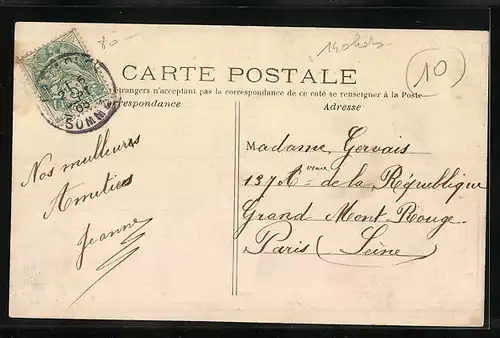 CARTE POSTALE
étrangers n'acceptant pas la correspondance de ce coté se renseigner à la Poste
rrespondance
Adresse
Nos meilleures
Amitiés
Jeanne
Madame Gervais
137 Ave de la République
Grand Mont-Rouge.
Paris (Seine)
10
SOMME